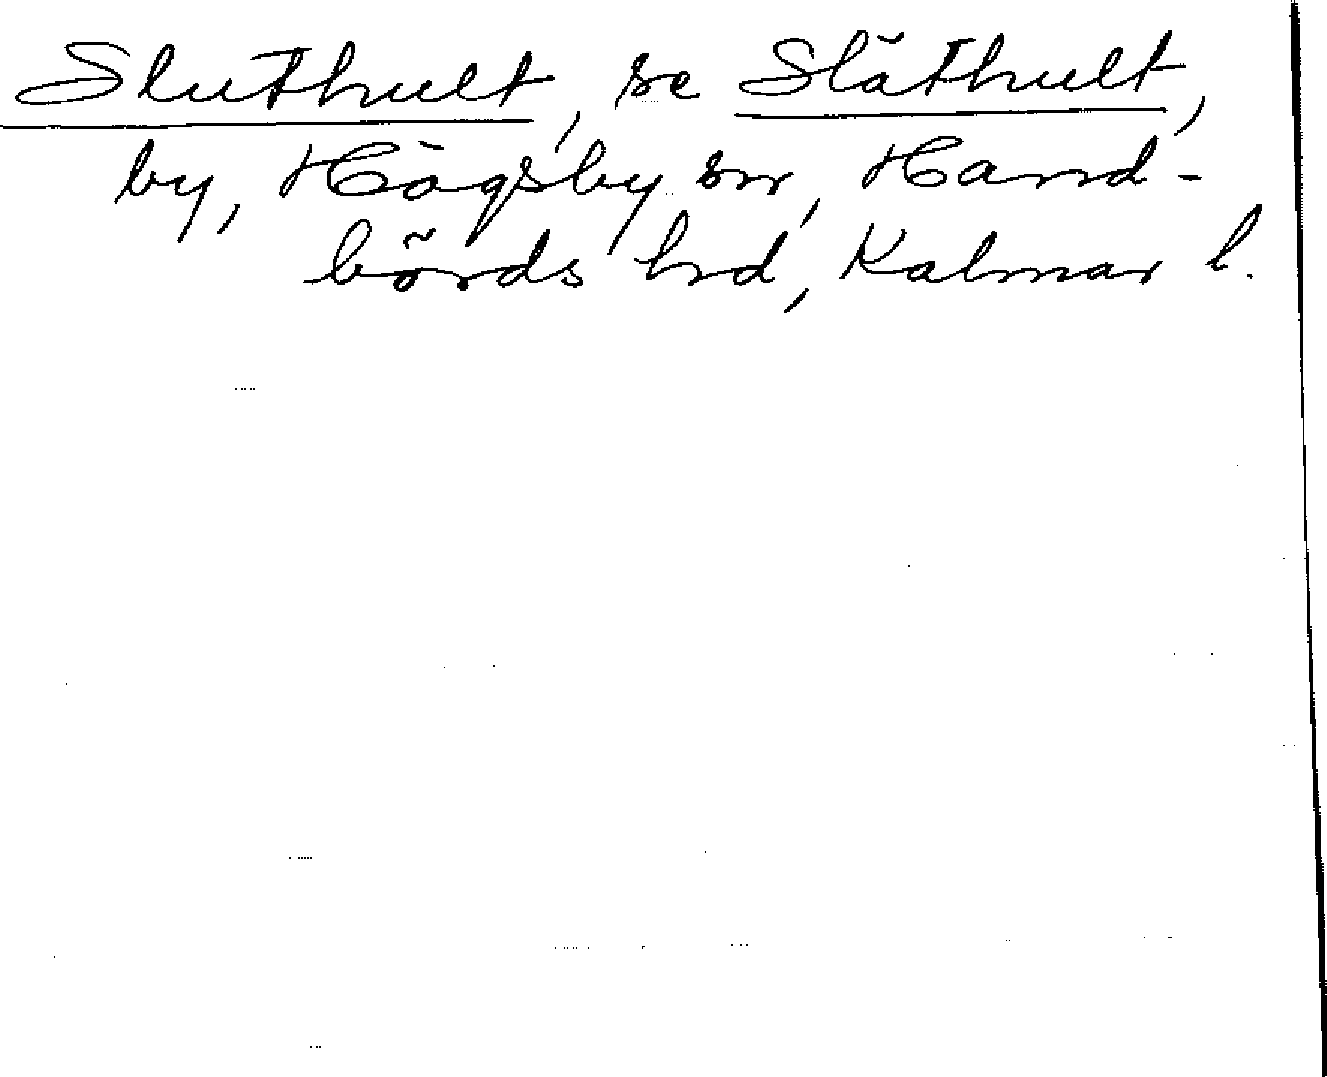 Sluthult, se Släthult,
by, Högsby sn, Hand-
börds hrd, Kalmar l.